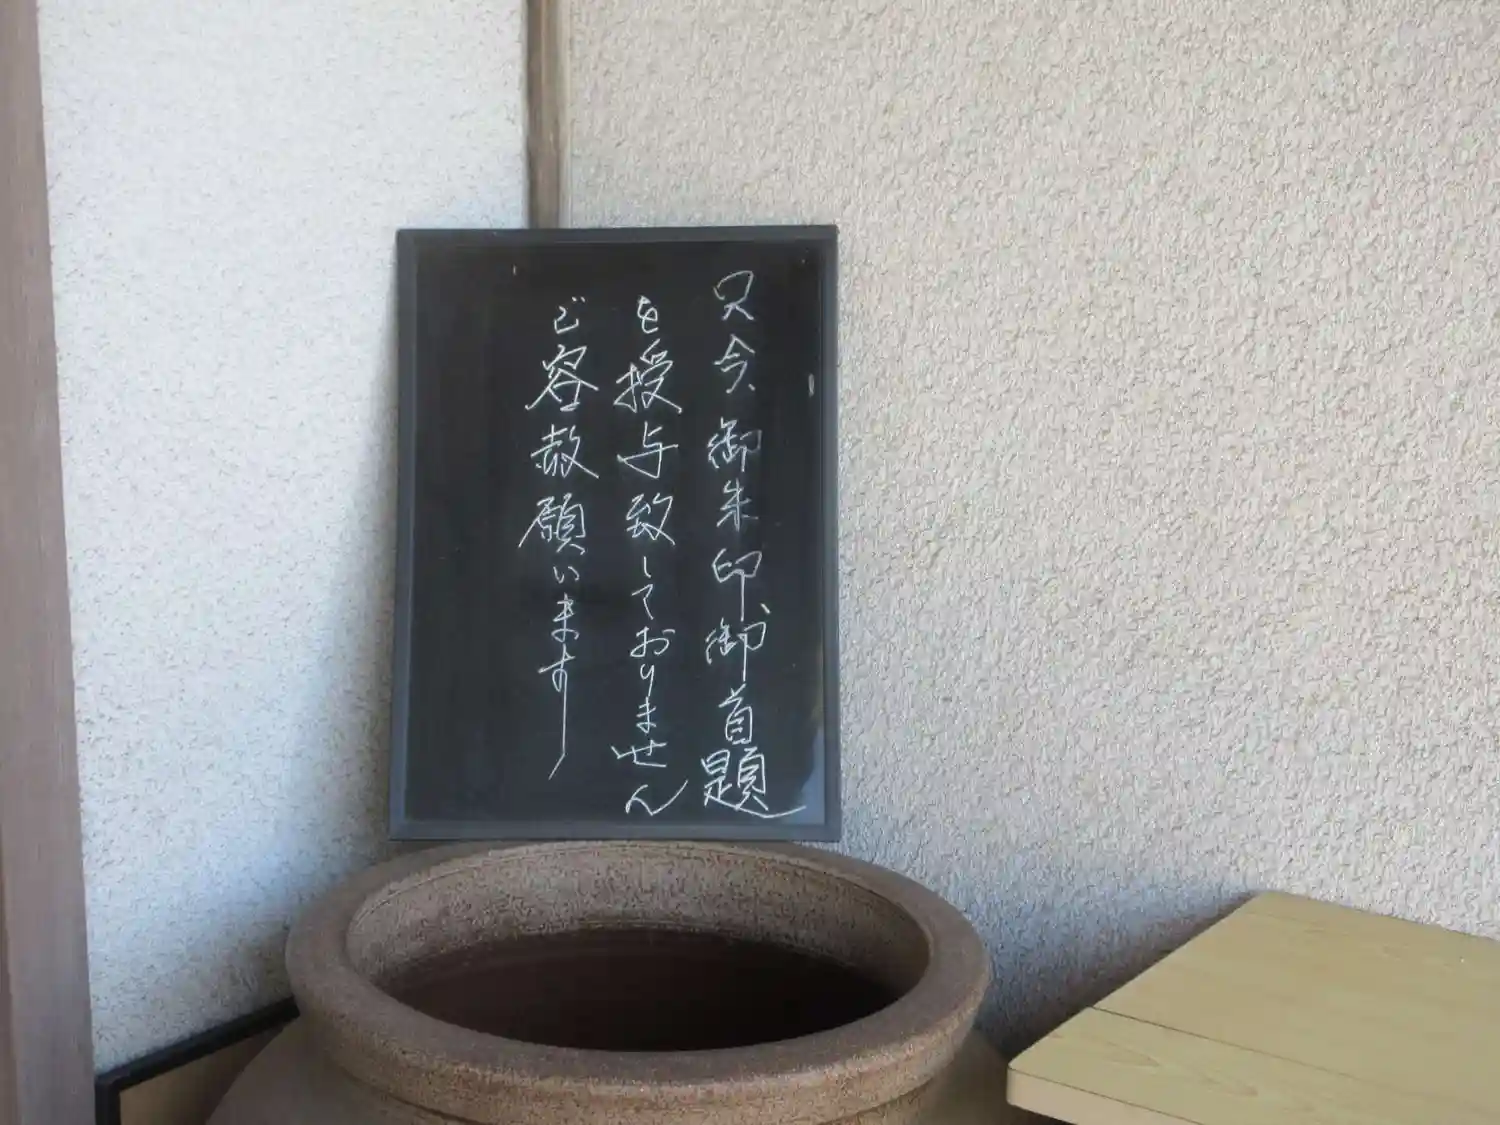 只今、御朱印、御首題
を授与致しておりません
ご容赦願います